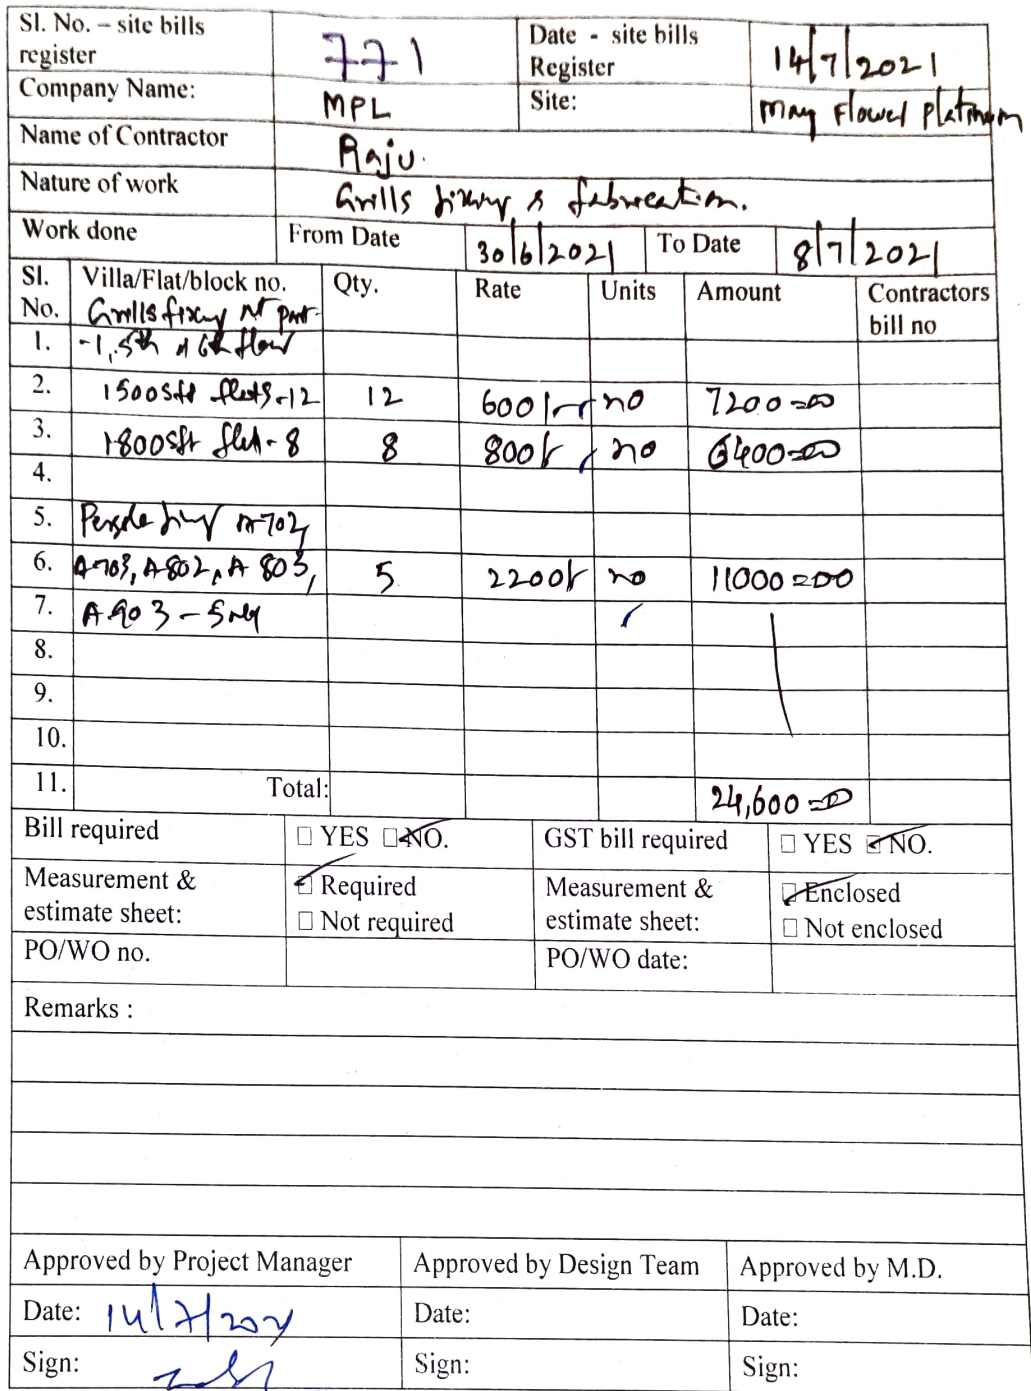 Sl. No. – site bills register 771 Date - site bills Register 14/7/2021
Company Name: MPL Site: May Flower Platinum
Name of Contractor Raju.
Nature of work Grills fixing & fabrication.
Work done From Date 30/6/2021 To Date 8/7/2021
Sl. No. Villa/Flat/block no. Qty. Rate Units Amount Contractors bill no
Grills fixing at part
1. -1, 5th & 6th floor
2. 1500sft flats-12 12 600/- no 7200=00
3. 1800sft flat-8 8 800/- no 6400=00
4.
5. A-702,
6. A-703, A-802, A 803, 5 2200/- no 11000=00
7. A-903 -
8.
9.
10.
11. Total: 24,600=00
Bill required □ YES □ NO. GST bill required □ YES □ NO.
Measurement & estimate sheet: □ Required □ Not required Measurement & estimate sheet: □ Enclosed □ Not enclosed
PO/WO no. PO/WO date:
Remarks :
Approved by Project Manager Approved by Design Team Approved by M.D.
Date: 14/7/2021 Date: Date:
Sign: Sign: Sign: